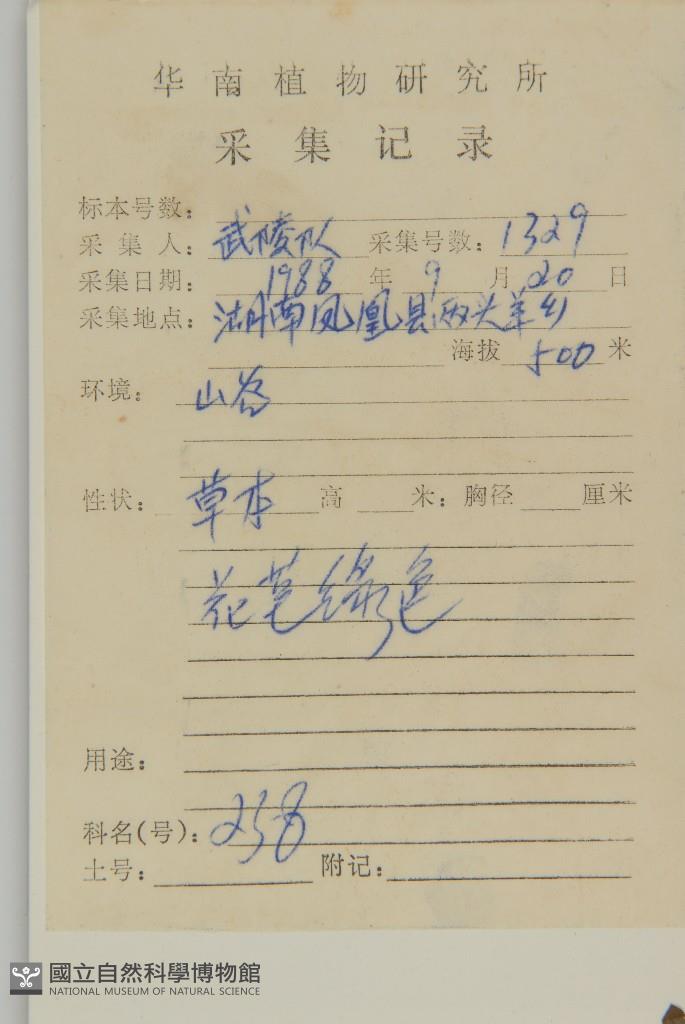 华南植物研究所
采集记录
标本号数：
采集人：武陵队 采集号数：1329
采集日期：1988年9月20日
采集地点：湖南凤凰县两头羊乡
海拔500米
环境：山谷
性状：草本 高 米；胸径 厘米
花草绿色
用途：
科名(号)：238
土号： 附记：
國立自然科學博物館
NATIONAL MUSEUM OF NATURAL SCIENCE